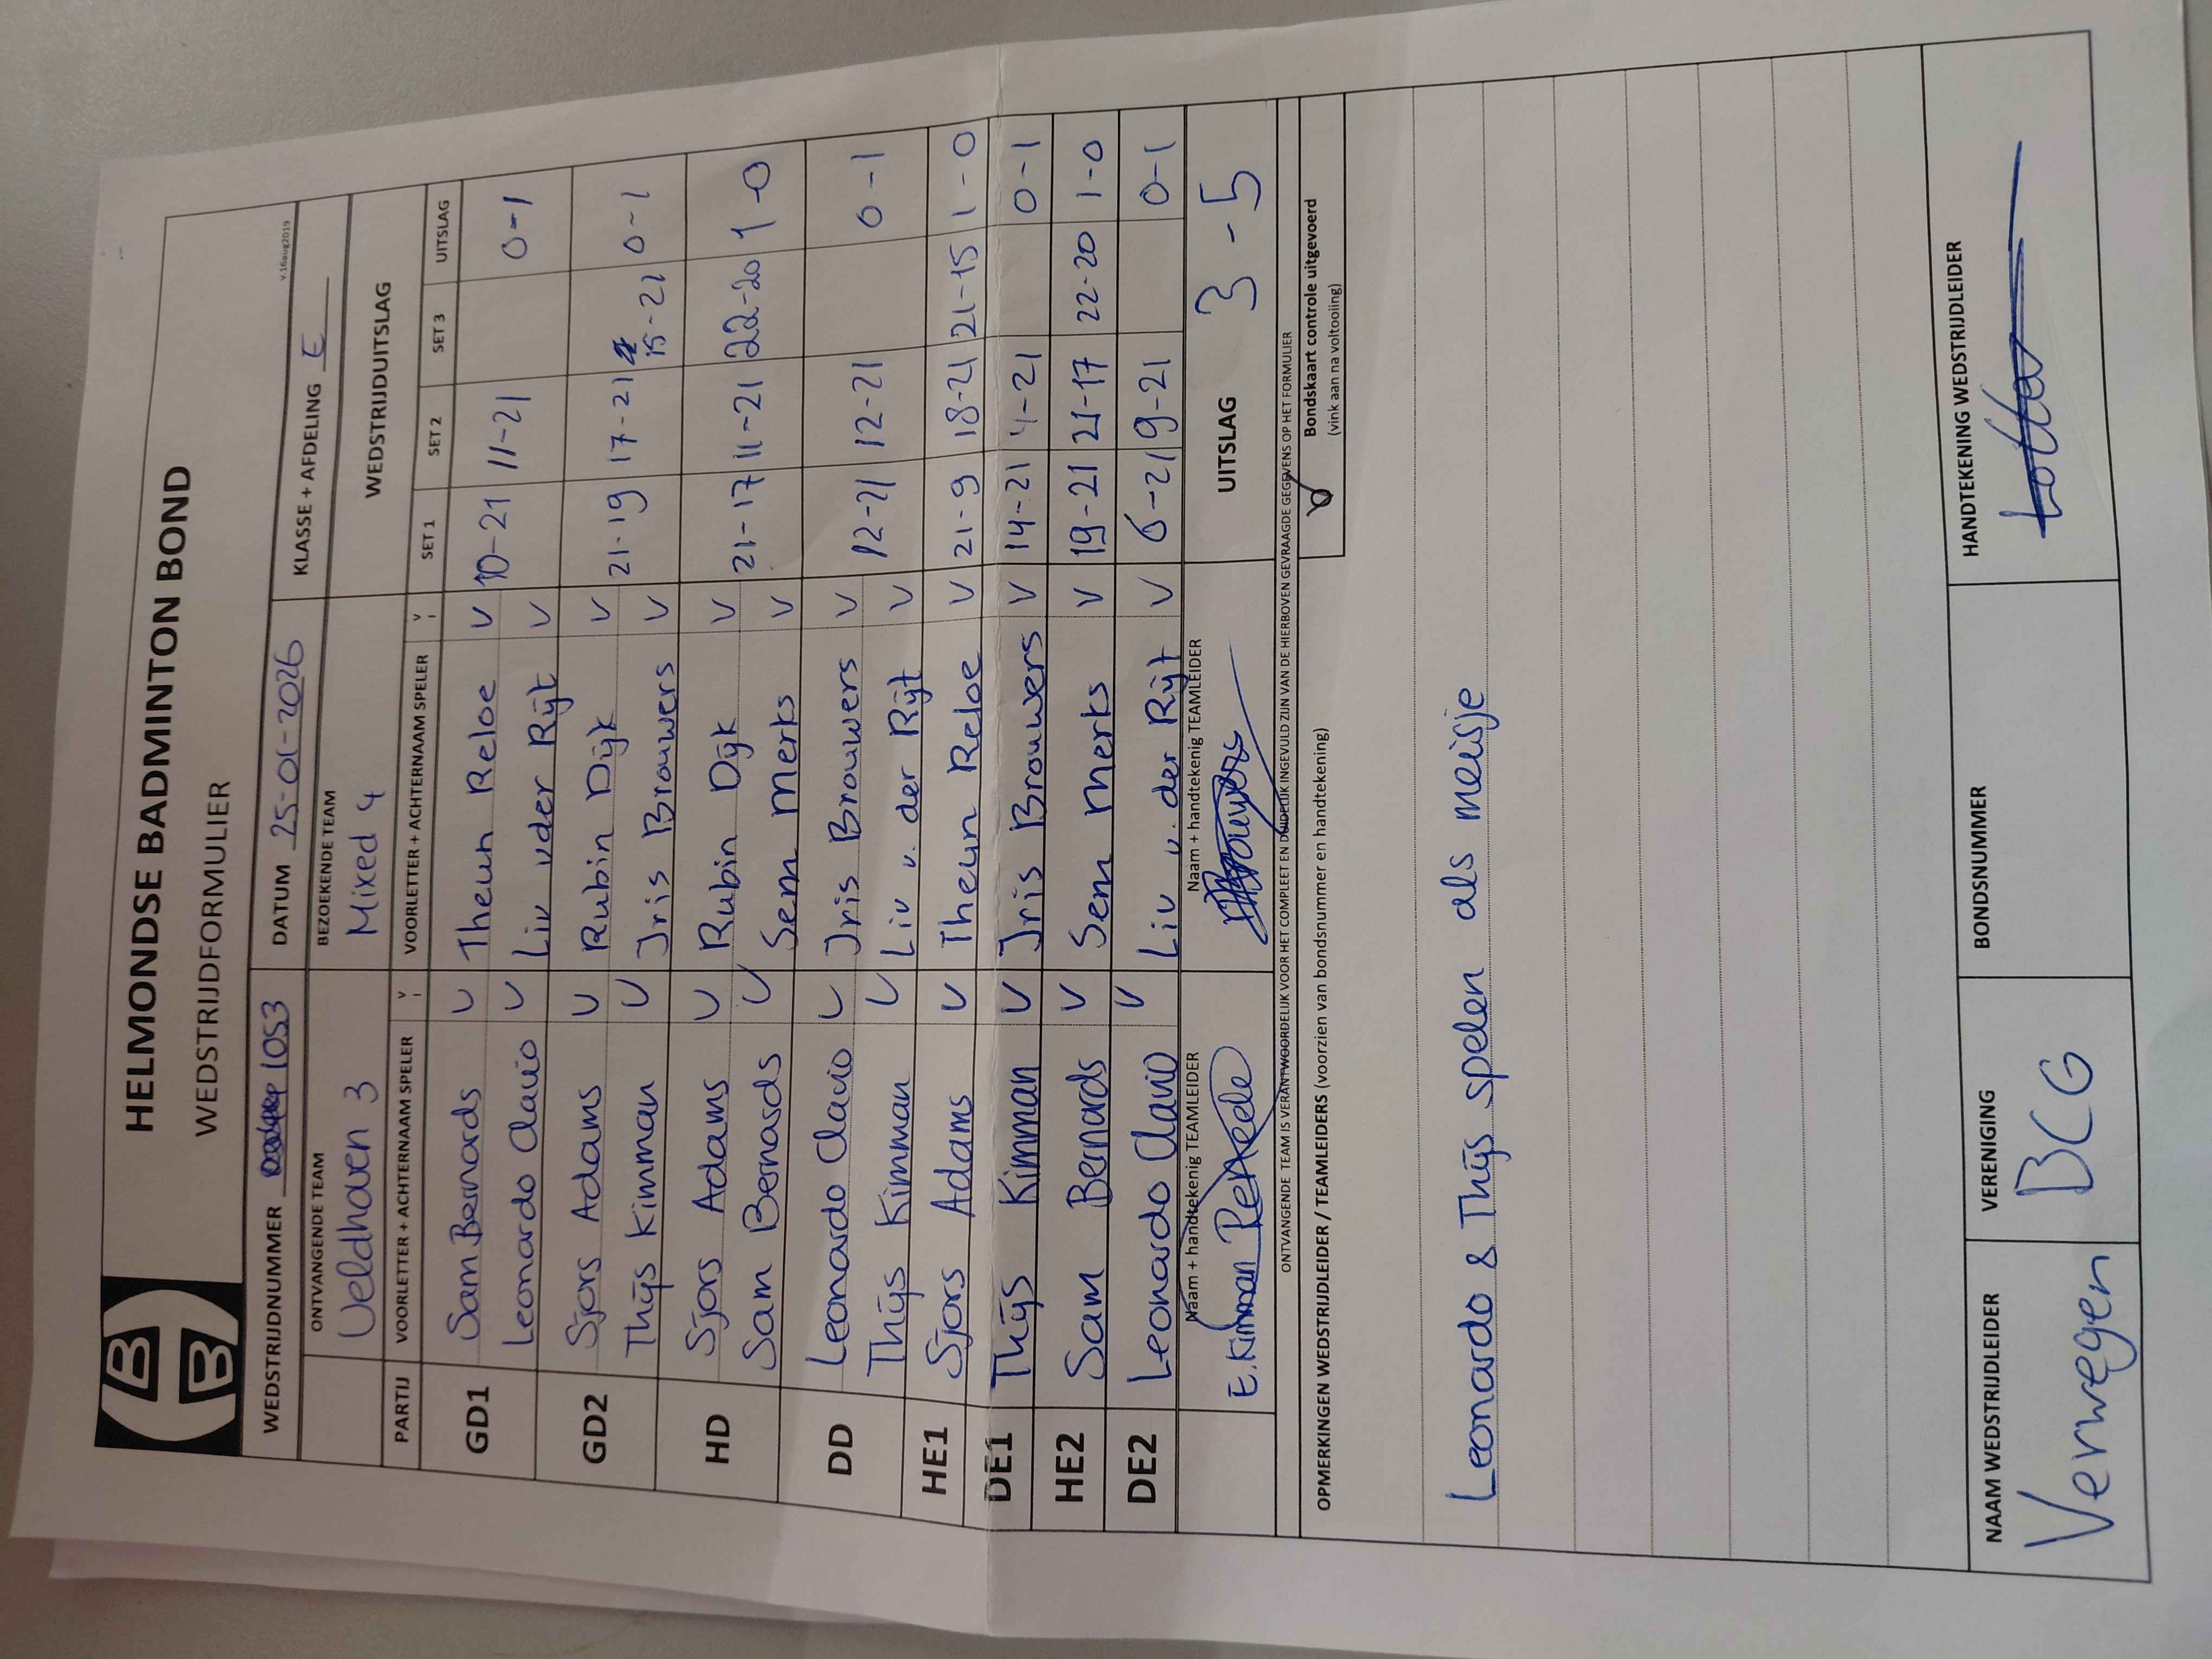 HBB
HELMONDSE BADMINTON BOND
WEDSTRIJDFORMULIER
v.16aug2019
WEDSTRIJDNUMMER 1053 DATUM 25-01-2026 KLASSE + AFDELING E
ONTVANGENDE TEAM BEZOEKENDE TEAM WEDSTRIJDUITSLAG
Veldhoven 3 Mixed 4
PARTIJ VOORLETTER + ACHTERNAAM SPELER V VOORLETTER + ACHTERNAAM SPELER V SET 1 SET 2 SET 3 UITSLAG
GD1 Sam Bernards V Theun Reloe V 10-21 11-21 0-1
Leonardo Clavio V Liv v der Rijt V
GD2 Sjors Adams V Rubin Dijk V 21-19 17-21 15-21 0-1
Thijs Kimman V Iris Brouwers V
HD Sjors Adams V Rubin Dijk V 21-17 11-21 22-20 1-0
Sam Bernards V Sem Merks V
DD Leonardo Clavio V Iris Brouwers V 12-21 12-21 0-1
Thijs Kimman V Liv v. der Rijt V
HE1 Sjors Adams V Theun Reloe V 21-9 18-21 21-15 1-0
DE1 Thijs Kimman V Iris Brouwers V 14-21 4-21 0-1
HE2 Sam Bernards V Sem Merks V 19-21 21-17 22-20 1-0
DE2 Leonardo Clavio V Liv v. der Rijt V 6-21 9-21 0-1
Naam + handtekenig TEAMLEIDER Naam + handtekenig TEAMLEIDER UITSLAG 3-5
E. Kimman Brouwers
ONTVANGENDE TEAM IS VERANTWOORDELIJK VOOR HET COMPLEET EN DUIDELIJK INGEVULD ZIJN VAN DE HIERBOVEN GEVRAAGDE GEGEVENS OP HET FORMULIER
OPMERKINGEN WEDSTRIJDLEIDER / TEAMLEIDERS (voorzien van bondsnummer en handtekening) V Bondskaart controle uitgevoerd
(vink aan na voltooiing)
Leonardo & Thijs spelen als meisje
NAAM WEDSTRIJDLEIDER VERENIGING BONDSNUMMER HANDTEKENING WEDSTRIJDLEIDER
Verwegen BCG